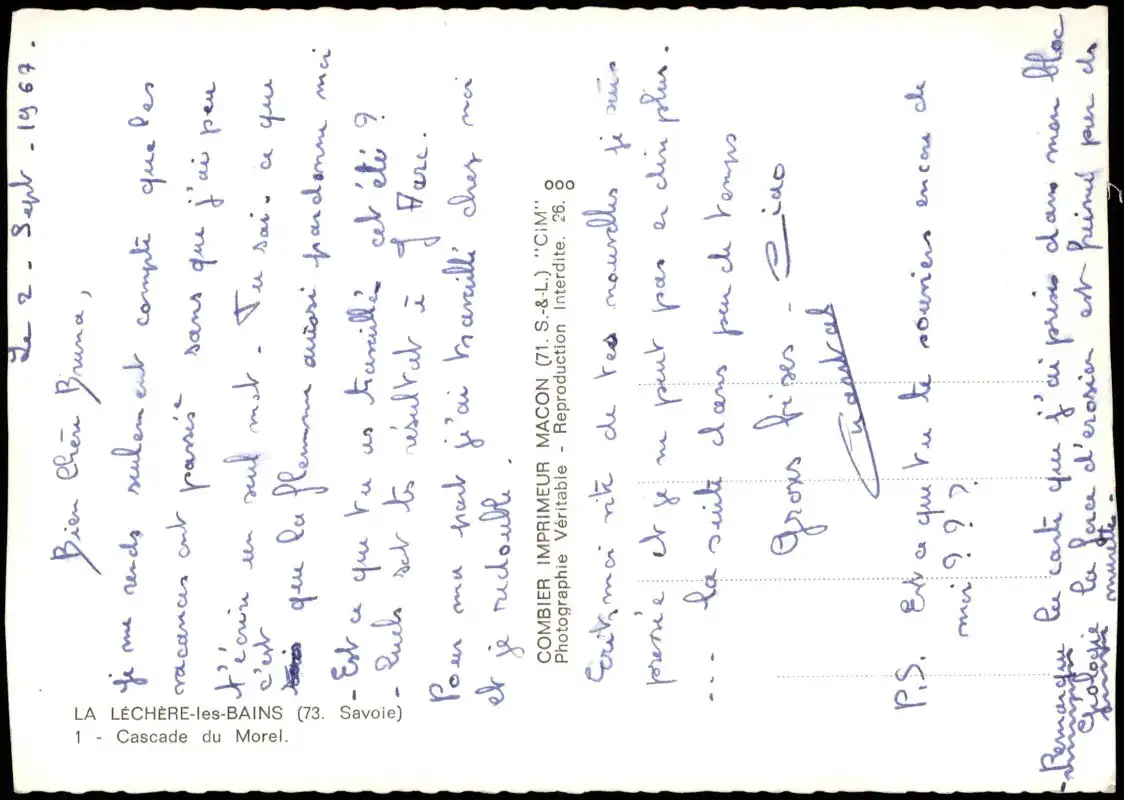 Le 2 - Sept - 1967.
Bien Chère Bruna,
je me rends seulement compte que les
vacances ont passé sans que j'ai peu
t'écrire un seul mot - Tu sais ce que
c'est que la flemme aussi pardonne moi
- Est ce que tu as travaillé cet été ?
- Quels sont tes résultat à J Marc.
Pour ma part j'ai travaillé chez moi
et je redouble.
Ecrits moi vite de tes nouvelles je suis
pressée et je ne peut pas en dire plus.
... la suite dans peu de temps
Gross bises - Ciao
P.S. Est ce que tu te souviens encore de
moi ? ? ?
- Remarque la carte que j'ai prise dans mon bloc
Géologie la force d'érosion est freiné par ds
murettes.
COMBIER IMPRIMEUR MACON (71. S.-&-L.) "CIM"
Photographie Véritable - Reproduction Interdite. 26. 8
LA LÉCHÈRE-les-BAINS (73. Savoie)
1 - Cascade du Morel.